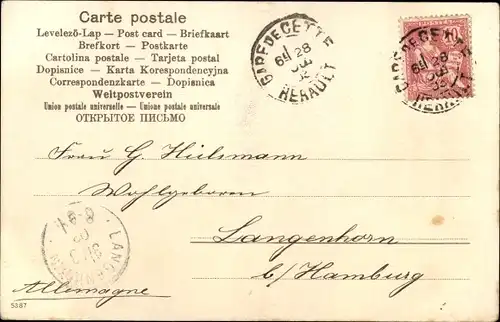 Carte postale
Levelező-Lap — Post card — Briefkaart
Brefkort — Postkarte
Cartolina postale — Tarjeta postal
Dopisnice - Karta Korespondencyjna
Correspondenzkarte - Dopisnica
Weltpostverein
Union postale universelle — Unione postale universale
ОТКРЫТОЕ ПИСЬМО
GARE DE CETTE
28
HERAULT
GARE DE CETTE
28
HERAULT
POSTES
10
Frau G. Hielsmann
Wohlgeboren
Langenhorn
b/Hamburg
Allemagne
LANGENHORN
5387